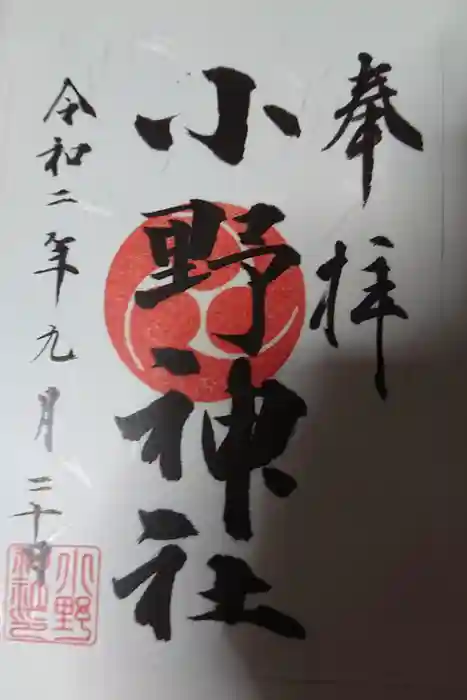 奉拝
小野神社
令和二年九月二十日
小野神社